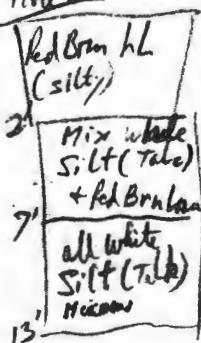 Red Brn
(silty)
2'
Mix white
Silt (Talc)
+ Red Brn Loam
7'
all white
Silt (Talc)
13'